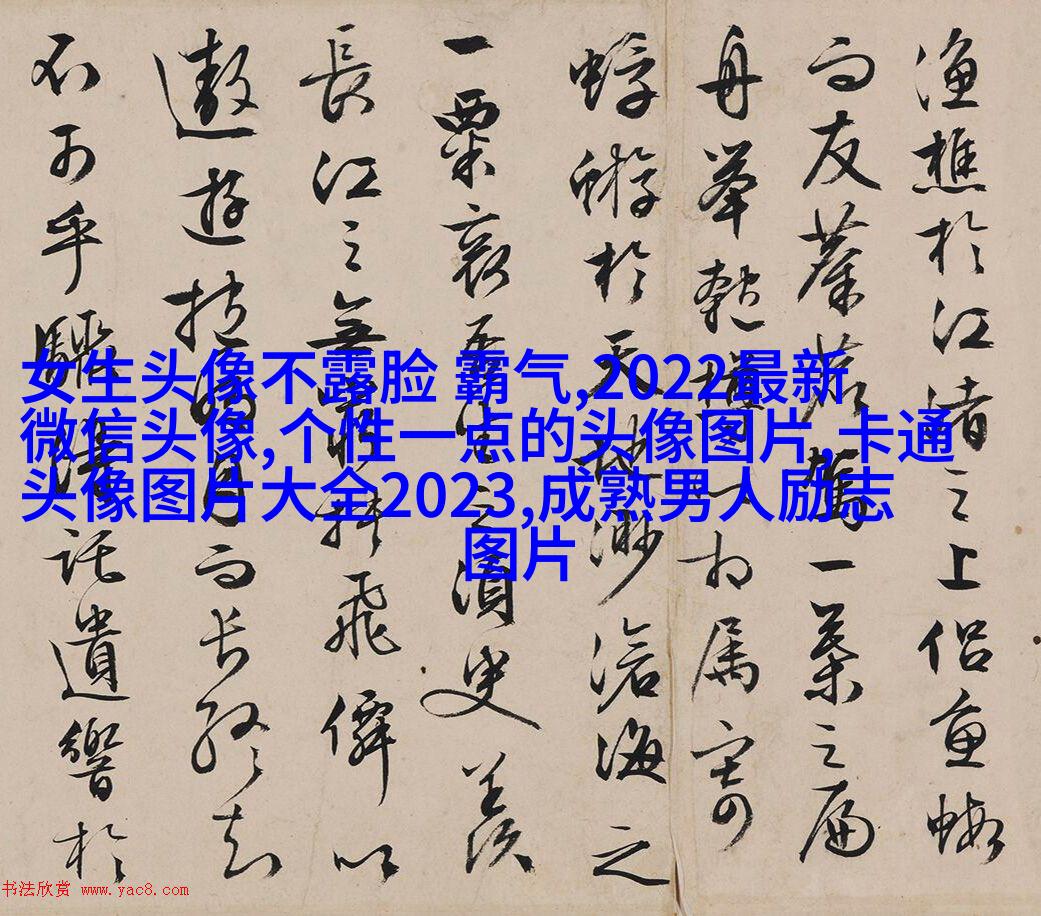 漁樵於江渚之上侣魚蝦
而友麋鹿駕一葉之扁
舟舉匏樽以相属寄
蜉蝣於天地渺滄海之
一粟哀吾生之須臾羨
長江之無窮挾飛僊以
遨遊抱明月而長終知
不可乎驟得託遺響於
女生头像不露脸 霸气,2022最新
微信头像,个性一点的头像图片,卡通
头像图片大全2023,成熟男人励志
图片
书法欣赏 www.yac8.com